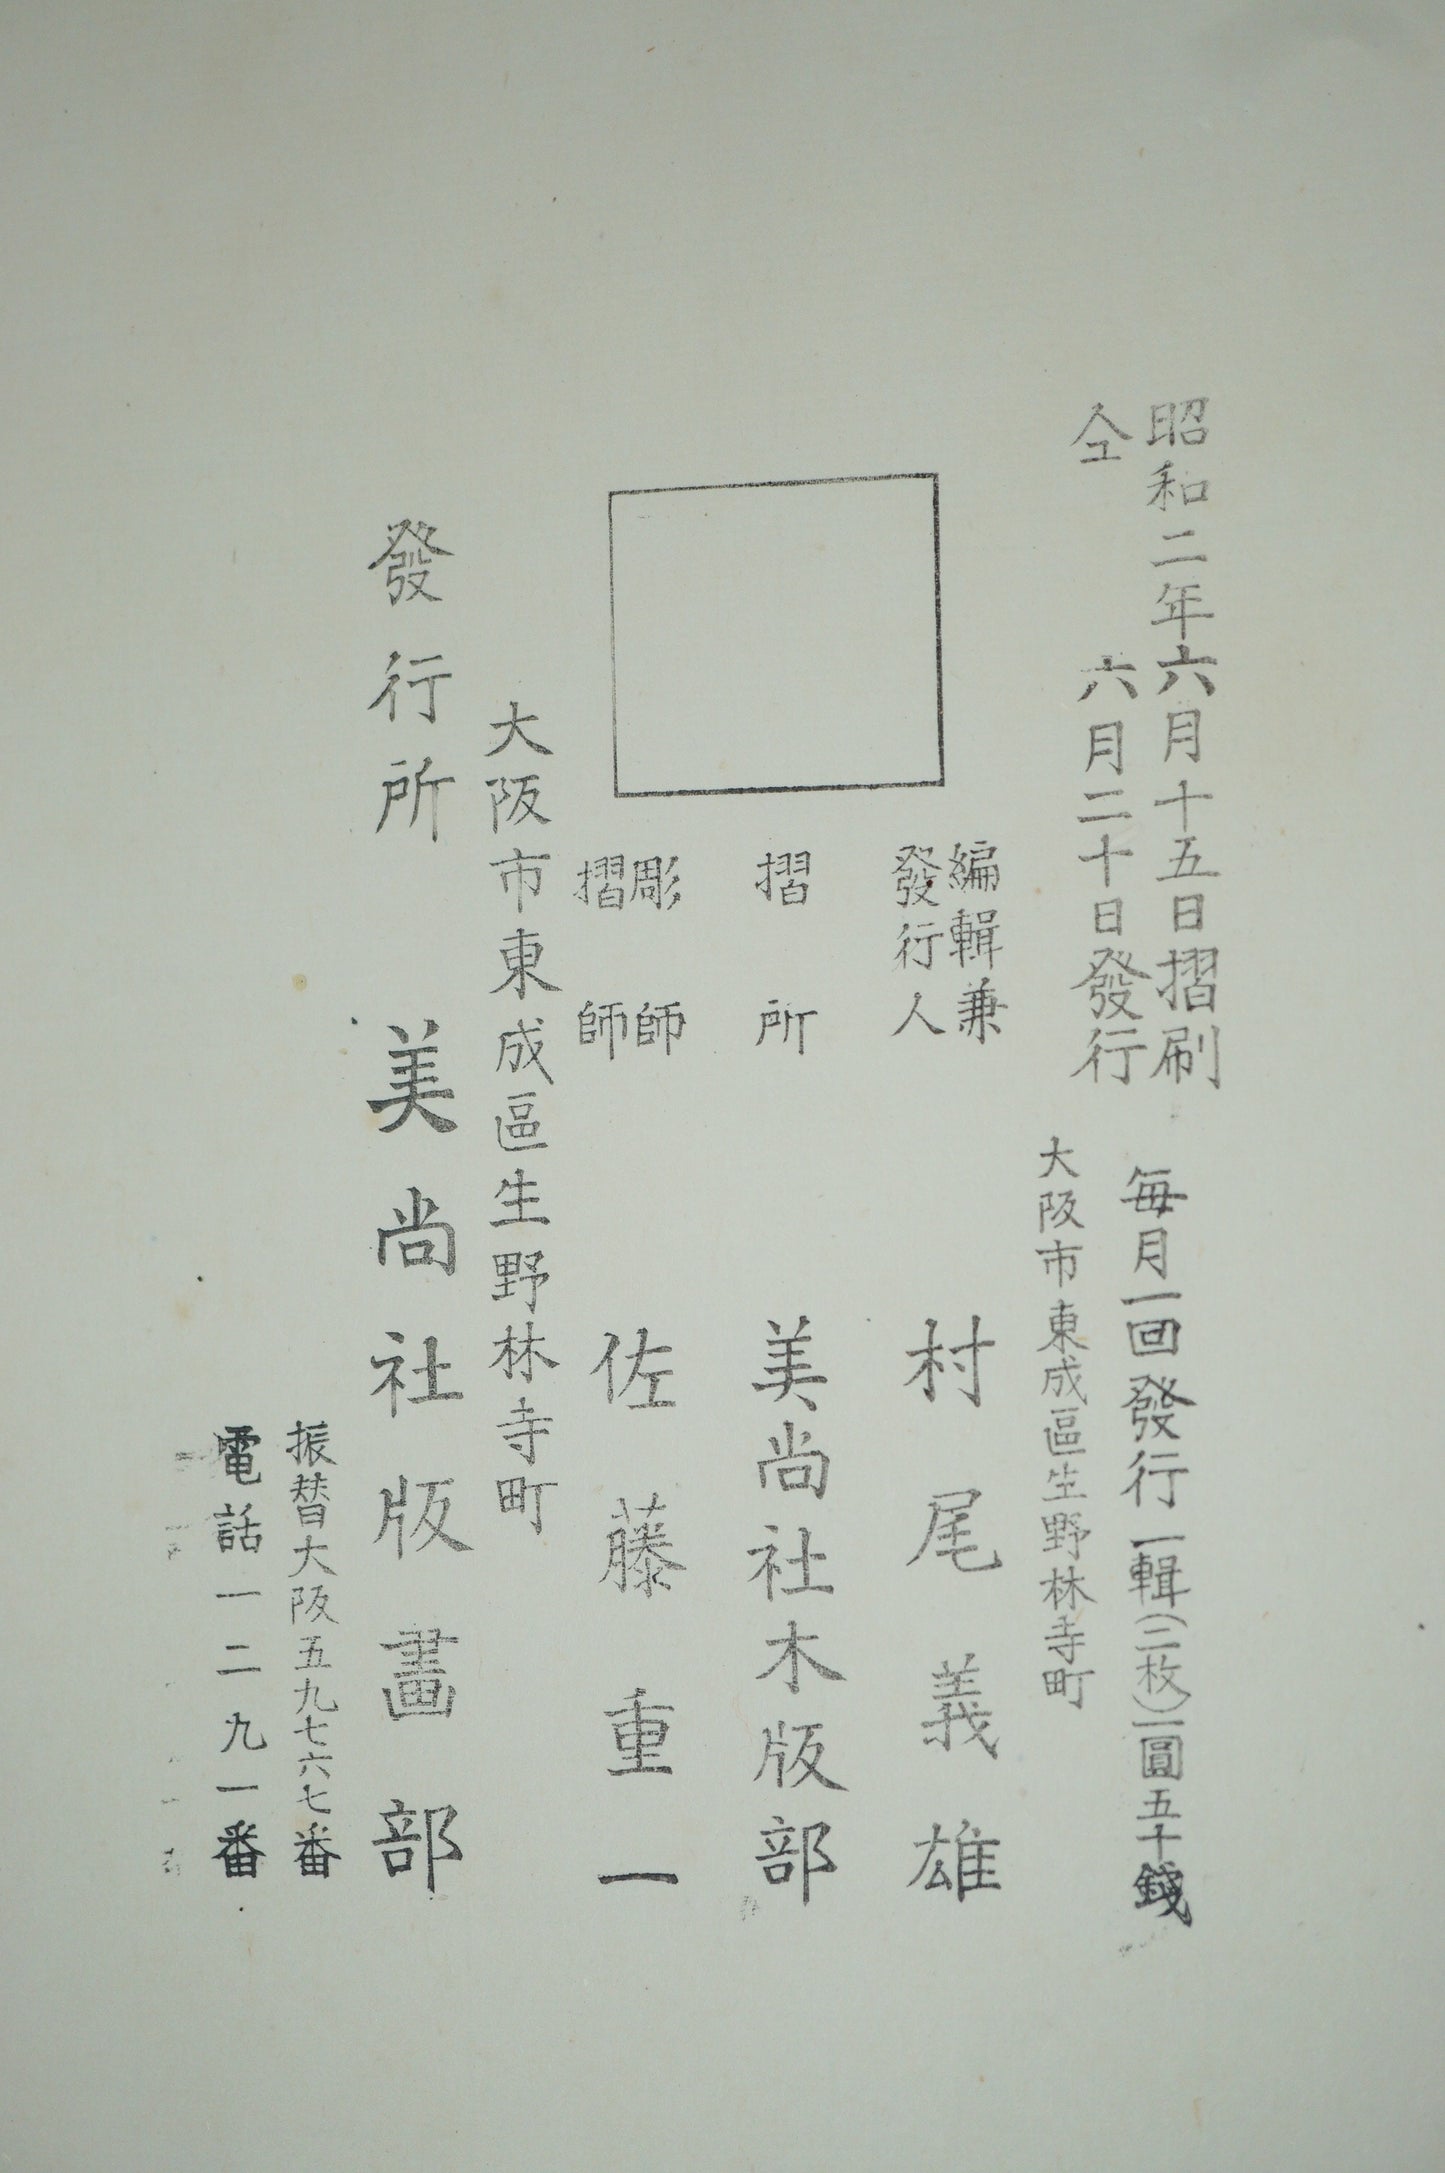 昭和二年六月十五日摺刷
仝　六月二十日發行
毎月一回發行一輯（二枚）一圓五十錢
大阪市東成區生野林寺町
編輯兼
發行人
村尾義雄
摺所
美尚社木版部
彫師
摺師
佐藤重一
大阪市東成區生野林寺町
發行所　美尚社版畫部
振替大阪五九七六七番
電話一二九一番